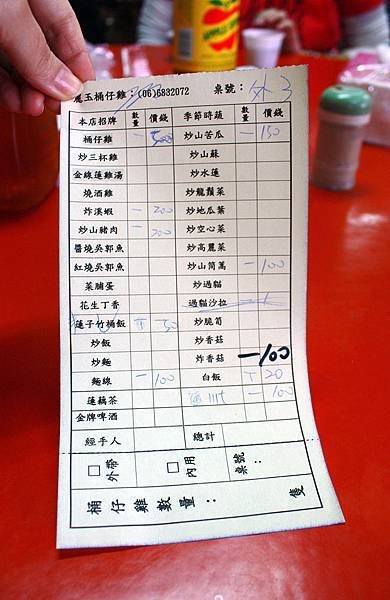 麗玉桶仔雞：(06)6832072 桌號：外3
本店招牌 數量 價錢 季節時蔬 數量 價錢
桶仔雞 一 500 炒山苦瓜 一 150
炒三杯雞 炒山蘇
金線蓮雞湯 炒水蓮
燒酒雞 炒龍鬚菜
炸溪蝦 一 200 炒地瓜葉
炒山豬肉 一 200 炒空心菜
醬燒吳郭魚 炒高麗菜
紅燒吳郭魚 炒山茼萵 一 100
菜脯蛋 炒過貓
花生丁香 過貓沙拉
蓮子竹桶飯 50 炒脆筍
炒飯 炒香菇
炒麵 炸香菇 一 100
麵線 一 100 白飯 T 20
蓮藕茶 一 100
金牌啤酒
經手人 總計
□外帶 □內用 桌號：
桶仔雞數量： 隻